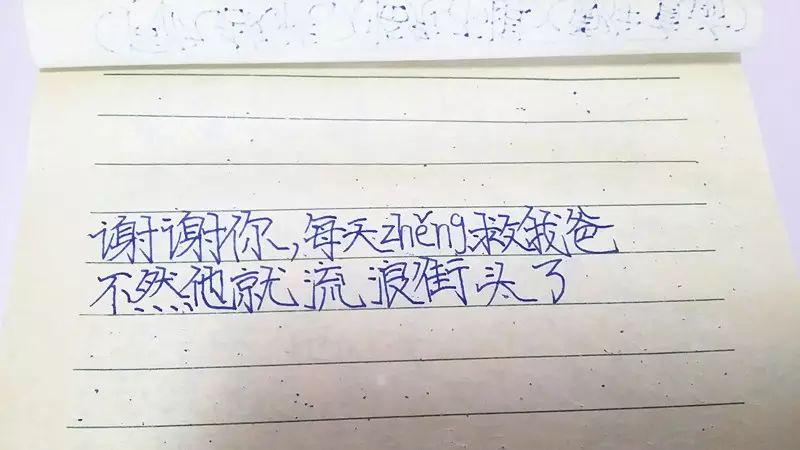 谢谢你,每天zhěng救我爸
不然他就流浪街头了